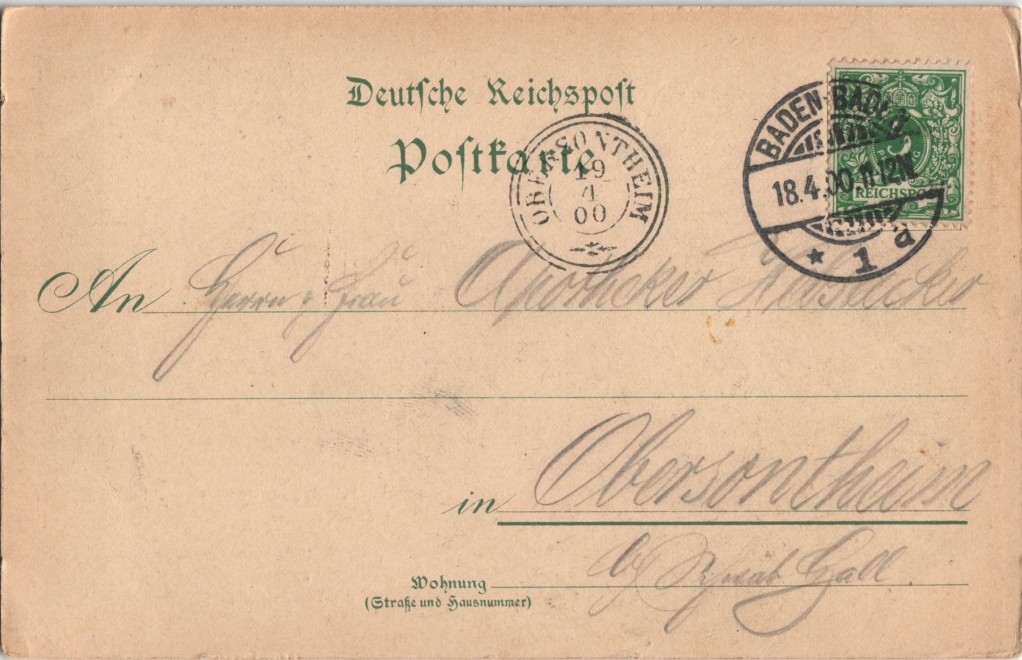 Deutsche Reichspost
Postkarte
OBERSONTHEIM
19
4
00
BADEN-BADEN
18.4.00 11-12N
* 1 a
REICHSPOST
An Herrn u. Frau Apotheker
in Obersontheim
b/ Schwäb Hall.
Wohnung
(Straße und Hausnummer)